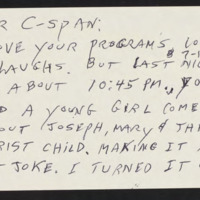 R C-SPAN:
OVE YOUR PROGRAMS LO
& 7-
LAUGHS. BUT LAST NI
ABOUT 10:45 PM., YO
D A YOUNG GIRL COME
OUT JOSEPH, MARY & TH
RIST CHILD. MAKING IT
JOKE. I TURNED IT O